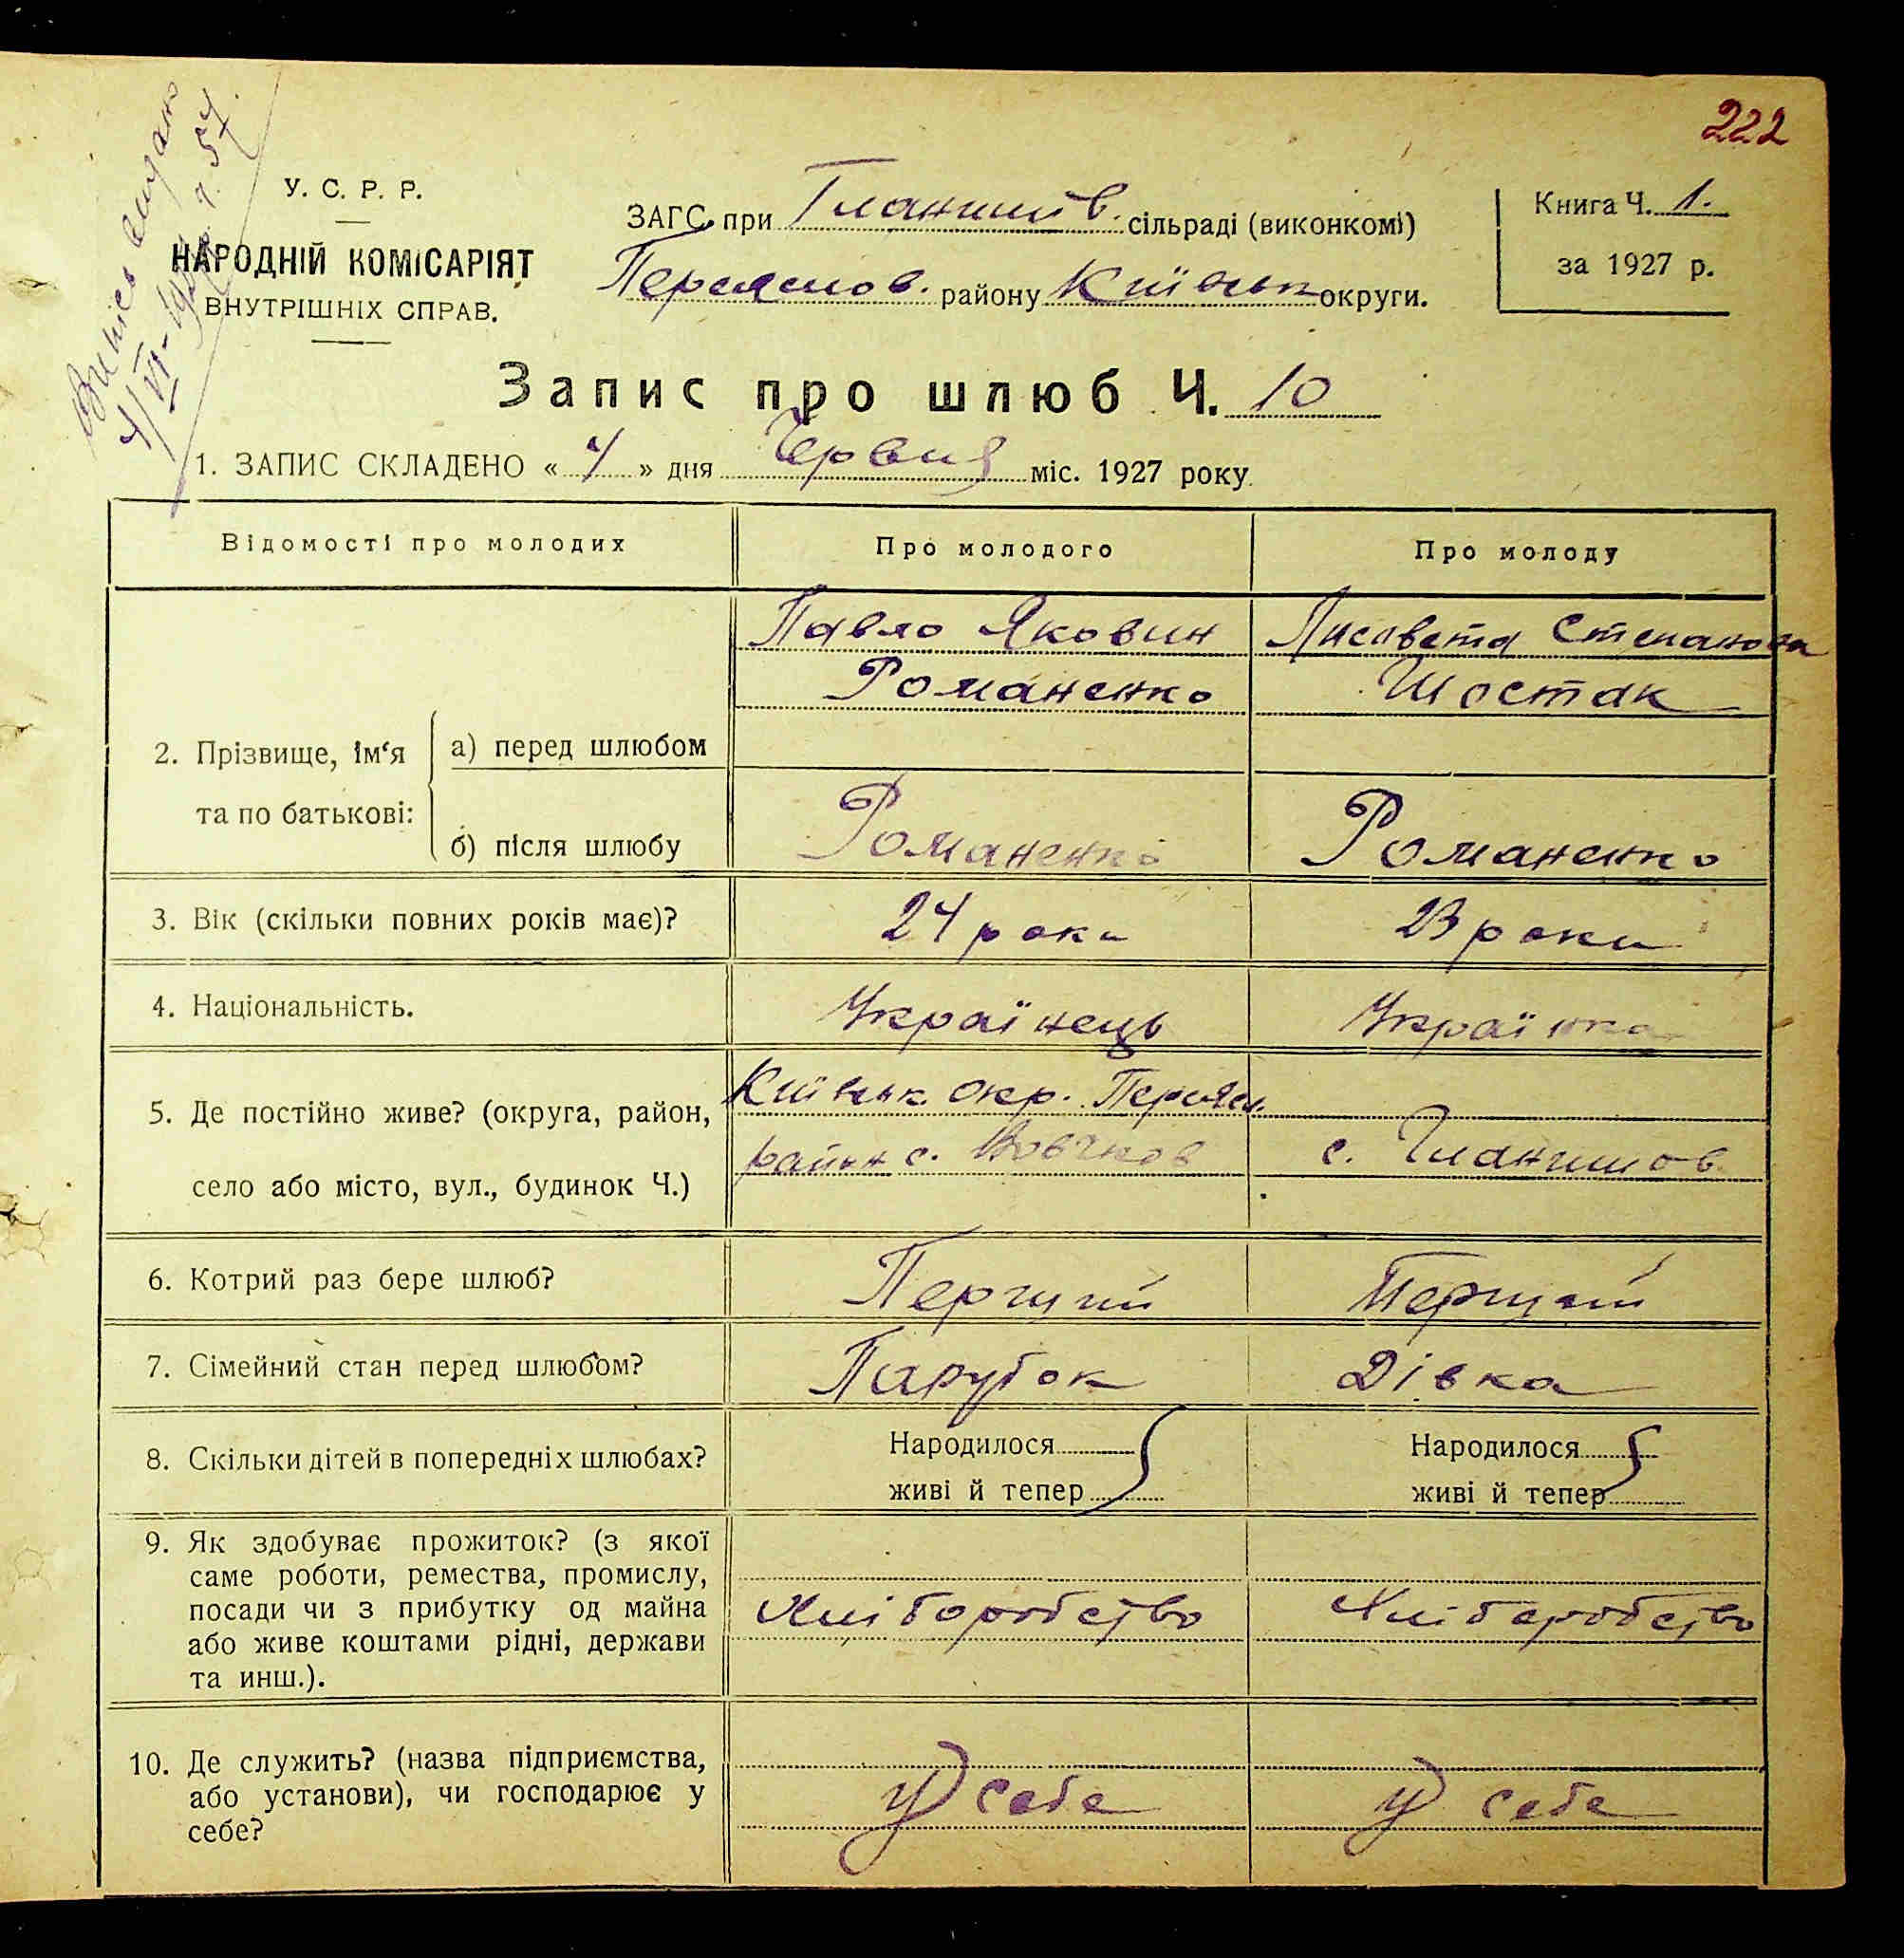 222
Випись видано
4/VI-1927 р. ч. 57.
У. С. Р. Р.
НАРОДНІЙ КОМІСАРІЯТ
ВНУТРІШНІХ СПРАВ.
ЗАГС при Гланишів. сільраді (виконкомі)
Переяслов. району Київськ округи.
Книга Ч. 1.
за 1927 р.
Запис про шлюб Ч. 10
1. ЗАПИС СКЛАДЕНО « 4 » дня Червня міс. 1927 року.
Відомості про молодих
Про молодого
Про молоду
2. Прізвище, ім‘я та по батькові:
а) перед шлюбом
Павло Яковин
Романенко
Лисавета Степанова
Шостак
б) після шлюбу
Романенко
Романенко
3. Вік (скільки повних років має)?
24 роки
23 роки
4. Національність.
Українець
Українка
5. Де постійно живе? (округа, район,
село або місто, вул., будинок Ч.)
Київськ. окр. Переясл.
район с. Вовчков
с. Гланишов
6. Котрий раз бере шлюб?
Перший
Перший
7. Сімейний стан перед шлюбом?
Парубок
Дівка
8. Скільки дітей в попередніх шлюбах?
Народилося
живі й тепер
Народилося
живі й тепер
9. Як здобуває прожиток? (з якої
саме роботи, ремества, промислу,
посади чи з прибутку од майна
або живе коштами рідні, держави
та инш.).
Хліборобство
Хліборобство
10. Де служить? (назва підприємства,
або установи), чи господарює у
себе?
у себе
у себе